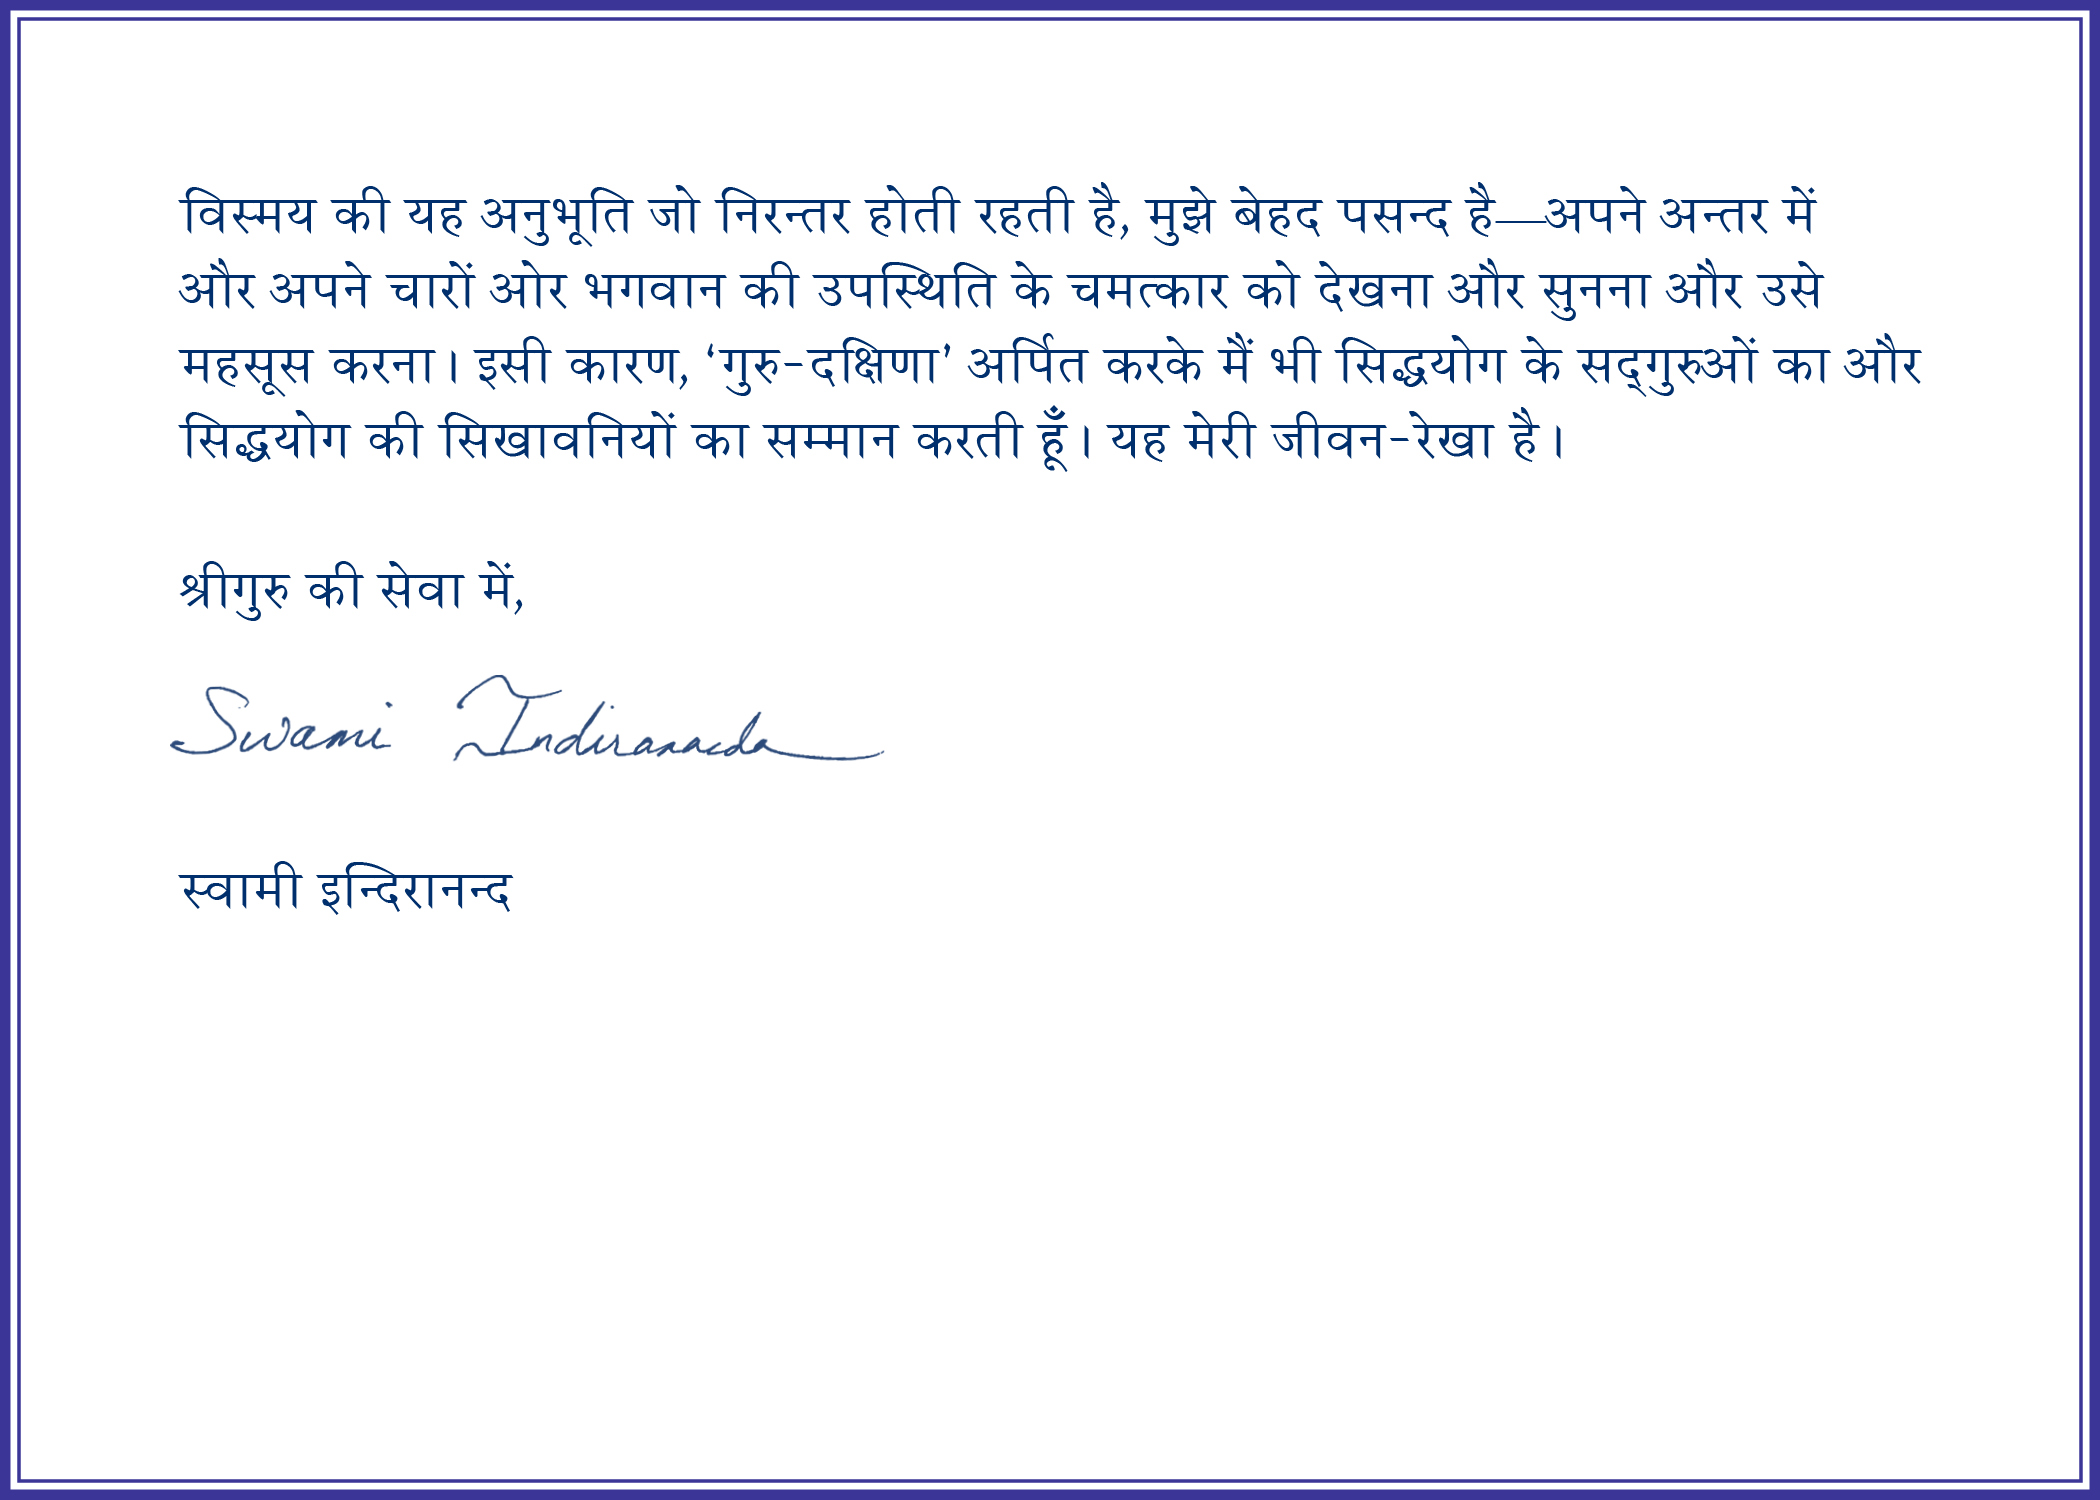 विस्मय की यह अनुभूति जो निरन्तर होती रहती है, मुझे बेहद पसन्द है—अपने अन्तर में
और अपने चारों ओर भगवान की उपस्थिति के चमत्कार को देखना और सुनना और उसे
महसूस करना। इसी कारण, ‘गुरु-दक्षिणा’ अर्पित करके मैं भी सिद्धयोग के सद्‌गुरुओं का और
सिद्धयोग की सिखावनियों का सम्मान करती हूँ। यह मेरी जीवन-रेखा है।
श्रीगुरु की सेवा में,
Swami Indirananda
स्वामी इन्दिरानन्द